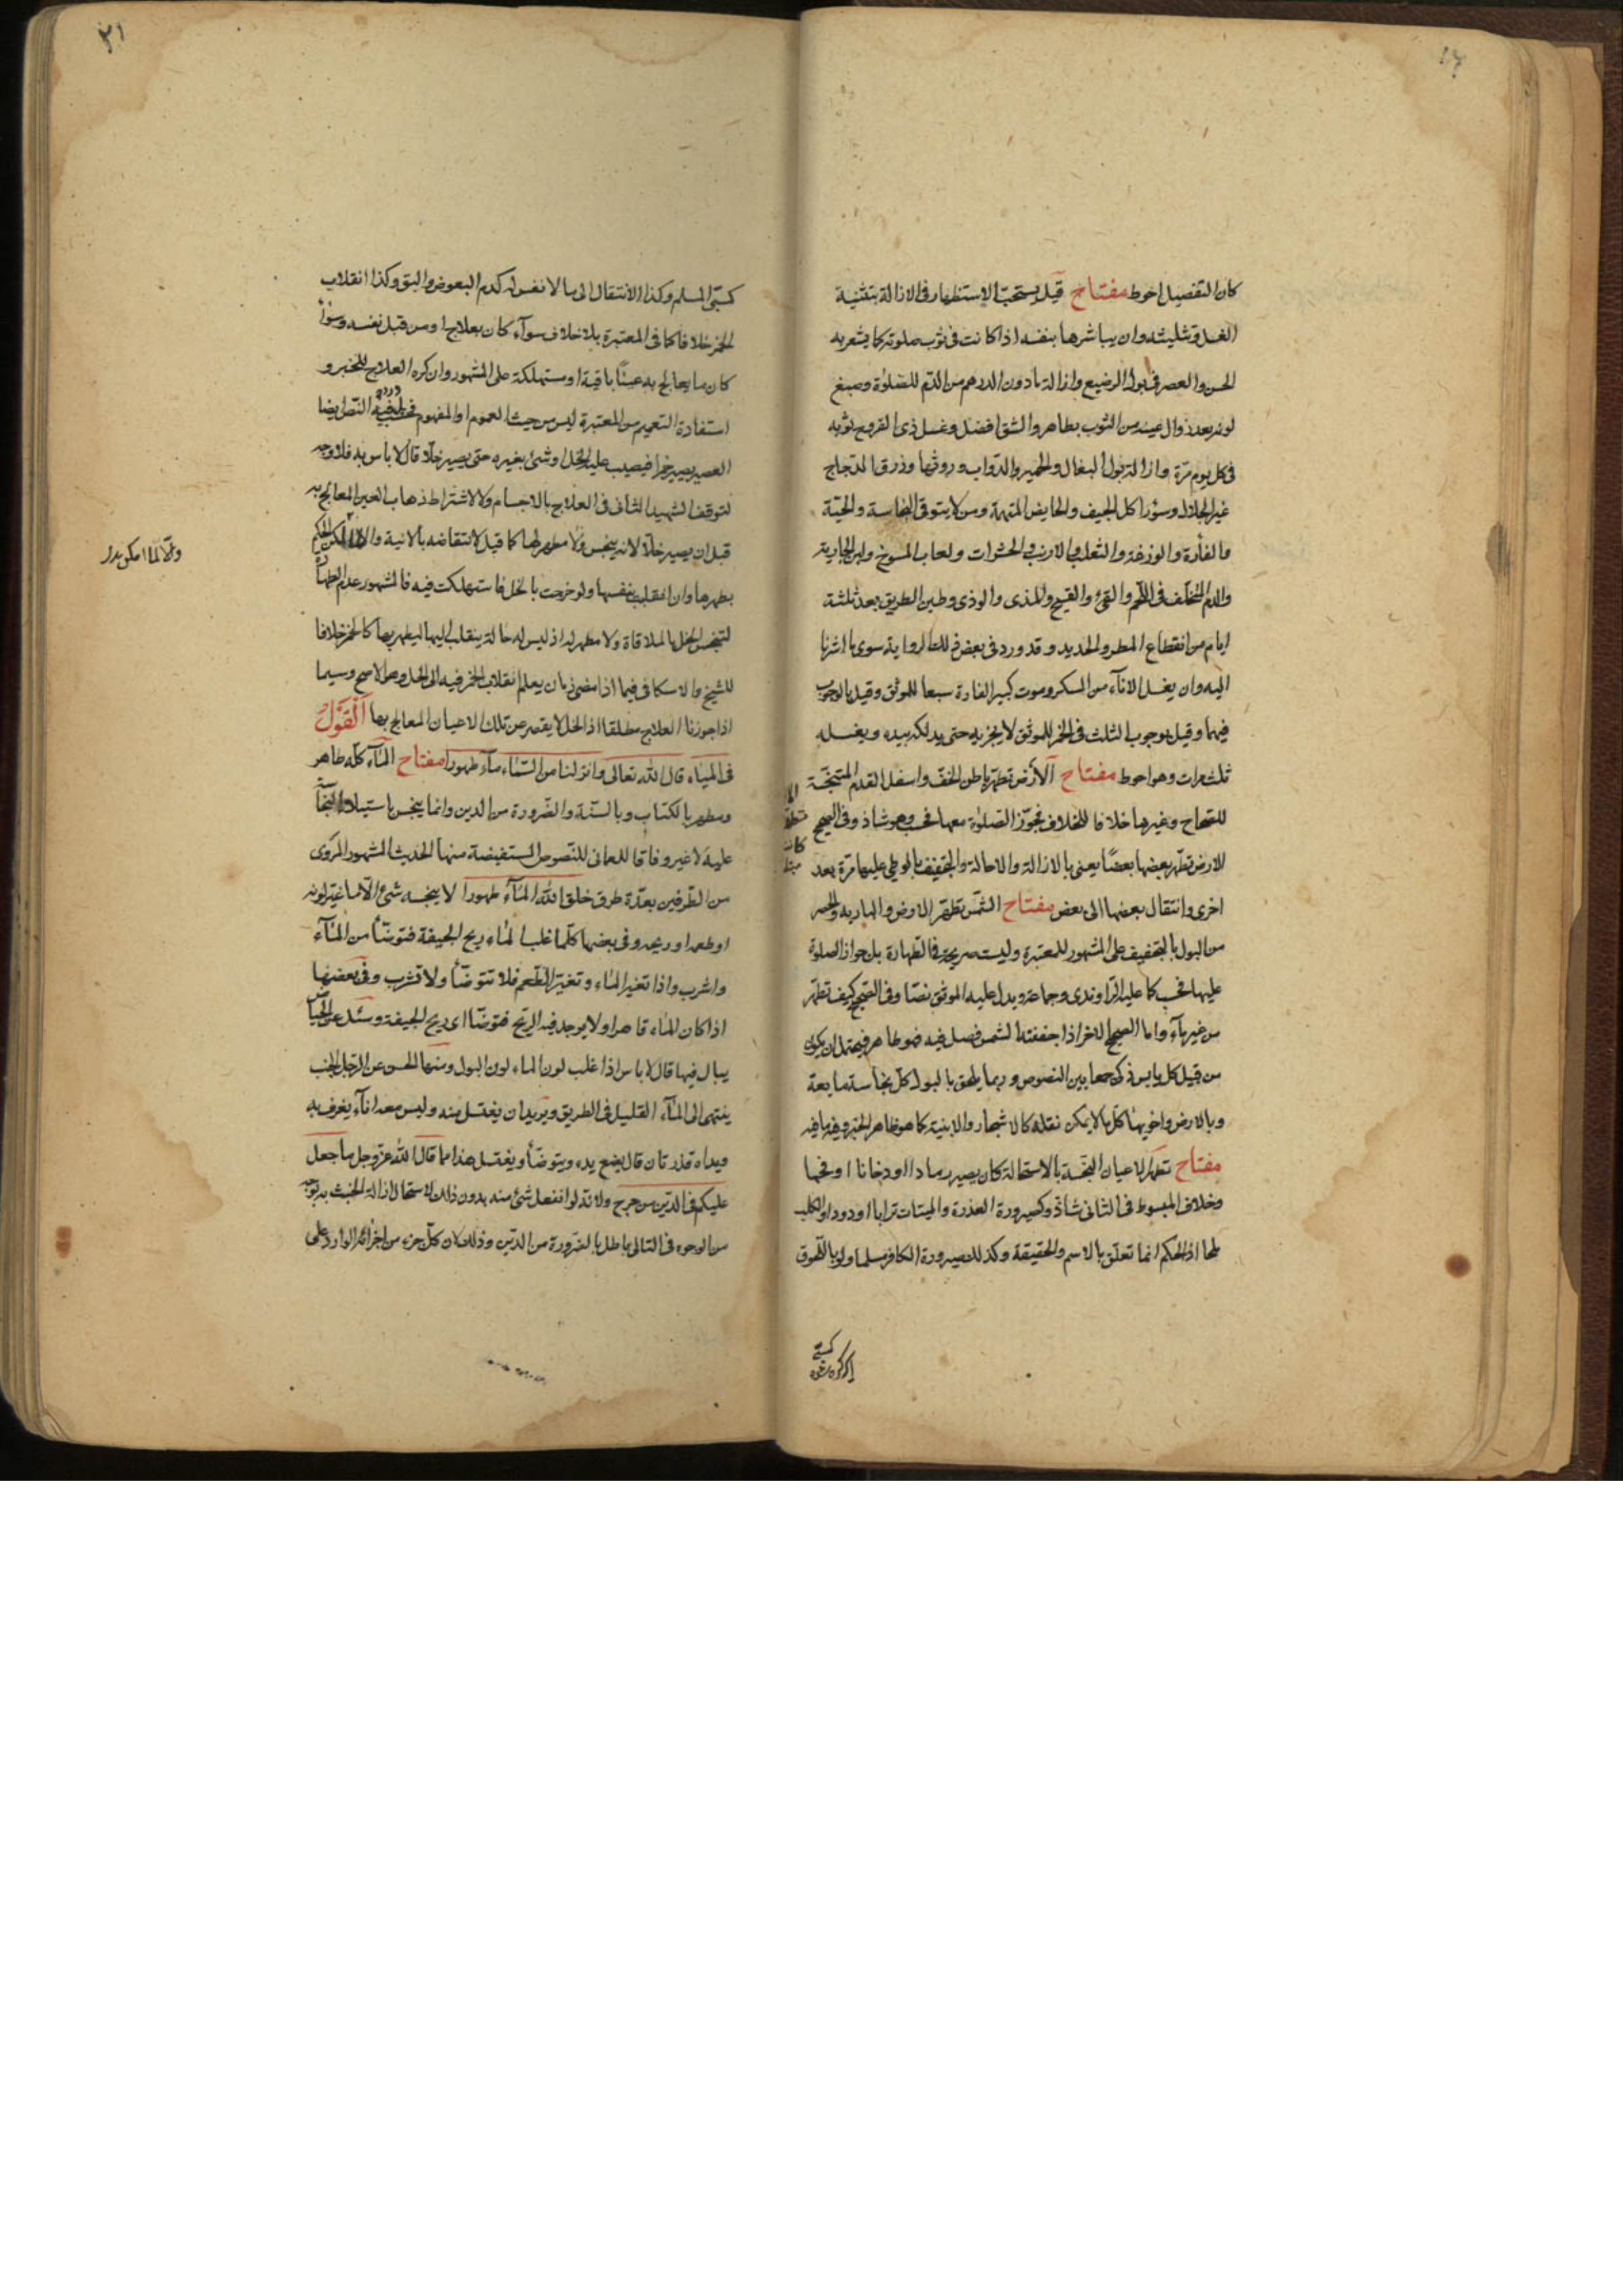 كان التفصيل احوط مفتاح قيل يستحب الاستظهار فى الازالة بتثنية
الغسل وتثليثه وان يباشرها بنفسه اذا كانت فى ثوب صلوته كما يشعر به
الحسن والعصر فى بول الرضيع وازالة ما دون الدرهم من الدم للصلوة وصبغ
لونه بعد زوال عينه من الثوب بطاهر والشق افضل وغسل ذى القروح ثوبه
فى كل يوم مرة وازالة بول البغال والحمير والدواب وروثها وذرق الدجاج
غير الجلال وسؤر اكل الجيف والحايض المتهمة ومن لا يتوقى النجاسة والحية
والفأرة والوزغة والثعلب والارنب والحشرات ولعاب المسوخ ولبن الجارية
والدم المتخلف فى اللحم والقئ والقيح والمذى والوذى وطين الطريق بعد ثلثة
ايام من انقطاع المطر والحديد وقد ورد فى بعض ذلك رواية سوى ما اشرنا
اليه وان يغسل الاناء من المسكر وموت كبير الفارة سبعا للموثق وقيل بالوجوب
فيهما وقيل بوجوب الثلث فى الخمر للموثق لا يجزيه حتى يدلكه بيده ويغسله
ثلث مرات وهو احوط مفتاح الارض تطهر باطن الخف واسفل القدم المتنجسة
للصحاح وغيرها خلافا للخلاف فجوز الصلوة معها فحسب وهو شاذ وفى الصحيح
الارض تطهر بعضها بعضا يعنى بالازالة والاحالة والتجفيف بالوطى عليها مرة بعد
اخرى وانتقال بعضها الى بعض مفتاح الشمس تطهر الارض والبارية والحصر
من البول بالتجفيف على المشهور للمعتبرة وليست صريحة فى الطهارة بل جواز الصلوة
عليها فحسب كما عليه الراوندى وجماعة ويدل عليه الموثق نصا وفى الصحيح كيف تطهر
من غير ماء واما الصحيح الاخر اذا جففته الشمس فصل فيه فهو طاهر فيحتمل ان يكون
من قبيل كل يابس ذكى جمعا بين النصوص وربما يلحق بالبول كل نجاسة مايعة
وبالارض واخويها كل ما لا يمكن نقله كالاشجار والابنية كما هو ظاهر الخبر وفيه ما فيه
مفتاح تطهر الاعيان النجسة بالاستحالة كان يصير رمادا او دخانا او فحما
وخلاف المبسوط فى الثانى شاذ وكصيرورة العذرة والميتات ترابا او دودا والكلب
ملحا اذ الحكم انما تعلق بالاسم والحقيقة وكذلك صيرورة الكافر مسلما ولو باللحوق
٢١
كسبى المسلم وكذا الانتقال الى ما لا نفس له كدم البعوض والبق وكذا انقلاب
الخمر خلا فاكما فى المعتبرة بلا خلاف سواء كان بعلاج او من قبل نفسه وسواء
كان ما يعالج به عينا باقية او مستهلكة على المشهور وان كره العلاج للخبر و
استفادة التعميم من المعتبرة ليس من حيث العموم او المفهوم فحسب النص ايضا
العصير يصير خمرا فيصب عليه الخل او شئ يغيره حتى يصير خلا قال لا باس به فلا وجه
لتوقف الشهيد الثانى فى العلاج بالاجسام ولا لاشتراط ذهاب العين المعالج به
قبل ان يصير خلا لانه ينجس ولا مطهر لها كما قيل لانتقاضه بالانية الحكم
بطهرها وان انقلبت بنفسها ولو خرجت بالخل فاستهلكت فيه فالمشهور عدم الطهارة
لتنجس الخل بالملاقاة ولا مطهر له اذ ليس له حالة ينقلب اليها ليطهر بها كالخمر خلافا
للشيخ والاسكافى فيما اذا مضى زمان يعلم انقلاب الخمر فيه الى الخل وهو الاصح وسيما
اذا جوزنا العلاج مطلقا اذ الخل لا يقصر عن تلك الاعيان المعالج بها القول
فى المياه قال الله تعالى وانزلنا من السماء ماء طهورا مفتاح الماء كله طاهر
ومطهر بالكتاب وبالسنة والضرورة من الدين وانما ينجس باستيلاء النجاسة
عليه لا غير وفاقا للعمانى للنصوص المستفيضة منها الحديث المشهور المروى
من الطرفين بعدة طرق خلق الله الماء طهورا لا ينجسه شئ الا ما غير لونه
او طعمه او ريحه وفى بعضها كلما غلب الماء ريح الجيفة فتوضأ من الماء
واشرب واذا تغير الماء وتغير الطعم فلا تتوضأ ولا تشرب وفى بعضها
اذا كان الماء قاهرا ولا يوجد فيه الريح فتوضأ اى ريح الجيفة وسئل عن الحياض
يبال فيها قال لا باس اذا غلب لون الماء لون البول ومنها الحسن عن الرجل الجنب
ينتهى الى الماء القليل فى الطريق ويريد ان يغتسل منه وليس معه اناء يغرف به
ويداه قذرتان قال يضع يده ويتوضأ ويغتسل هذا مما قال الله عز وجل ما جعل
عليكم فى الدين من حرج ولانه لو انفعل شئ منه بدون ذلك لاستحال ازالة الخبث به بوجه
من الوجوه فى التالى باطل بالضرورة من الدين وذلك لان كل جزء من اجزائه الوارد على